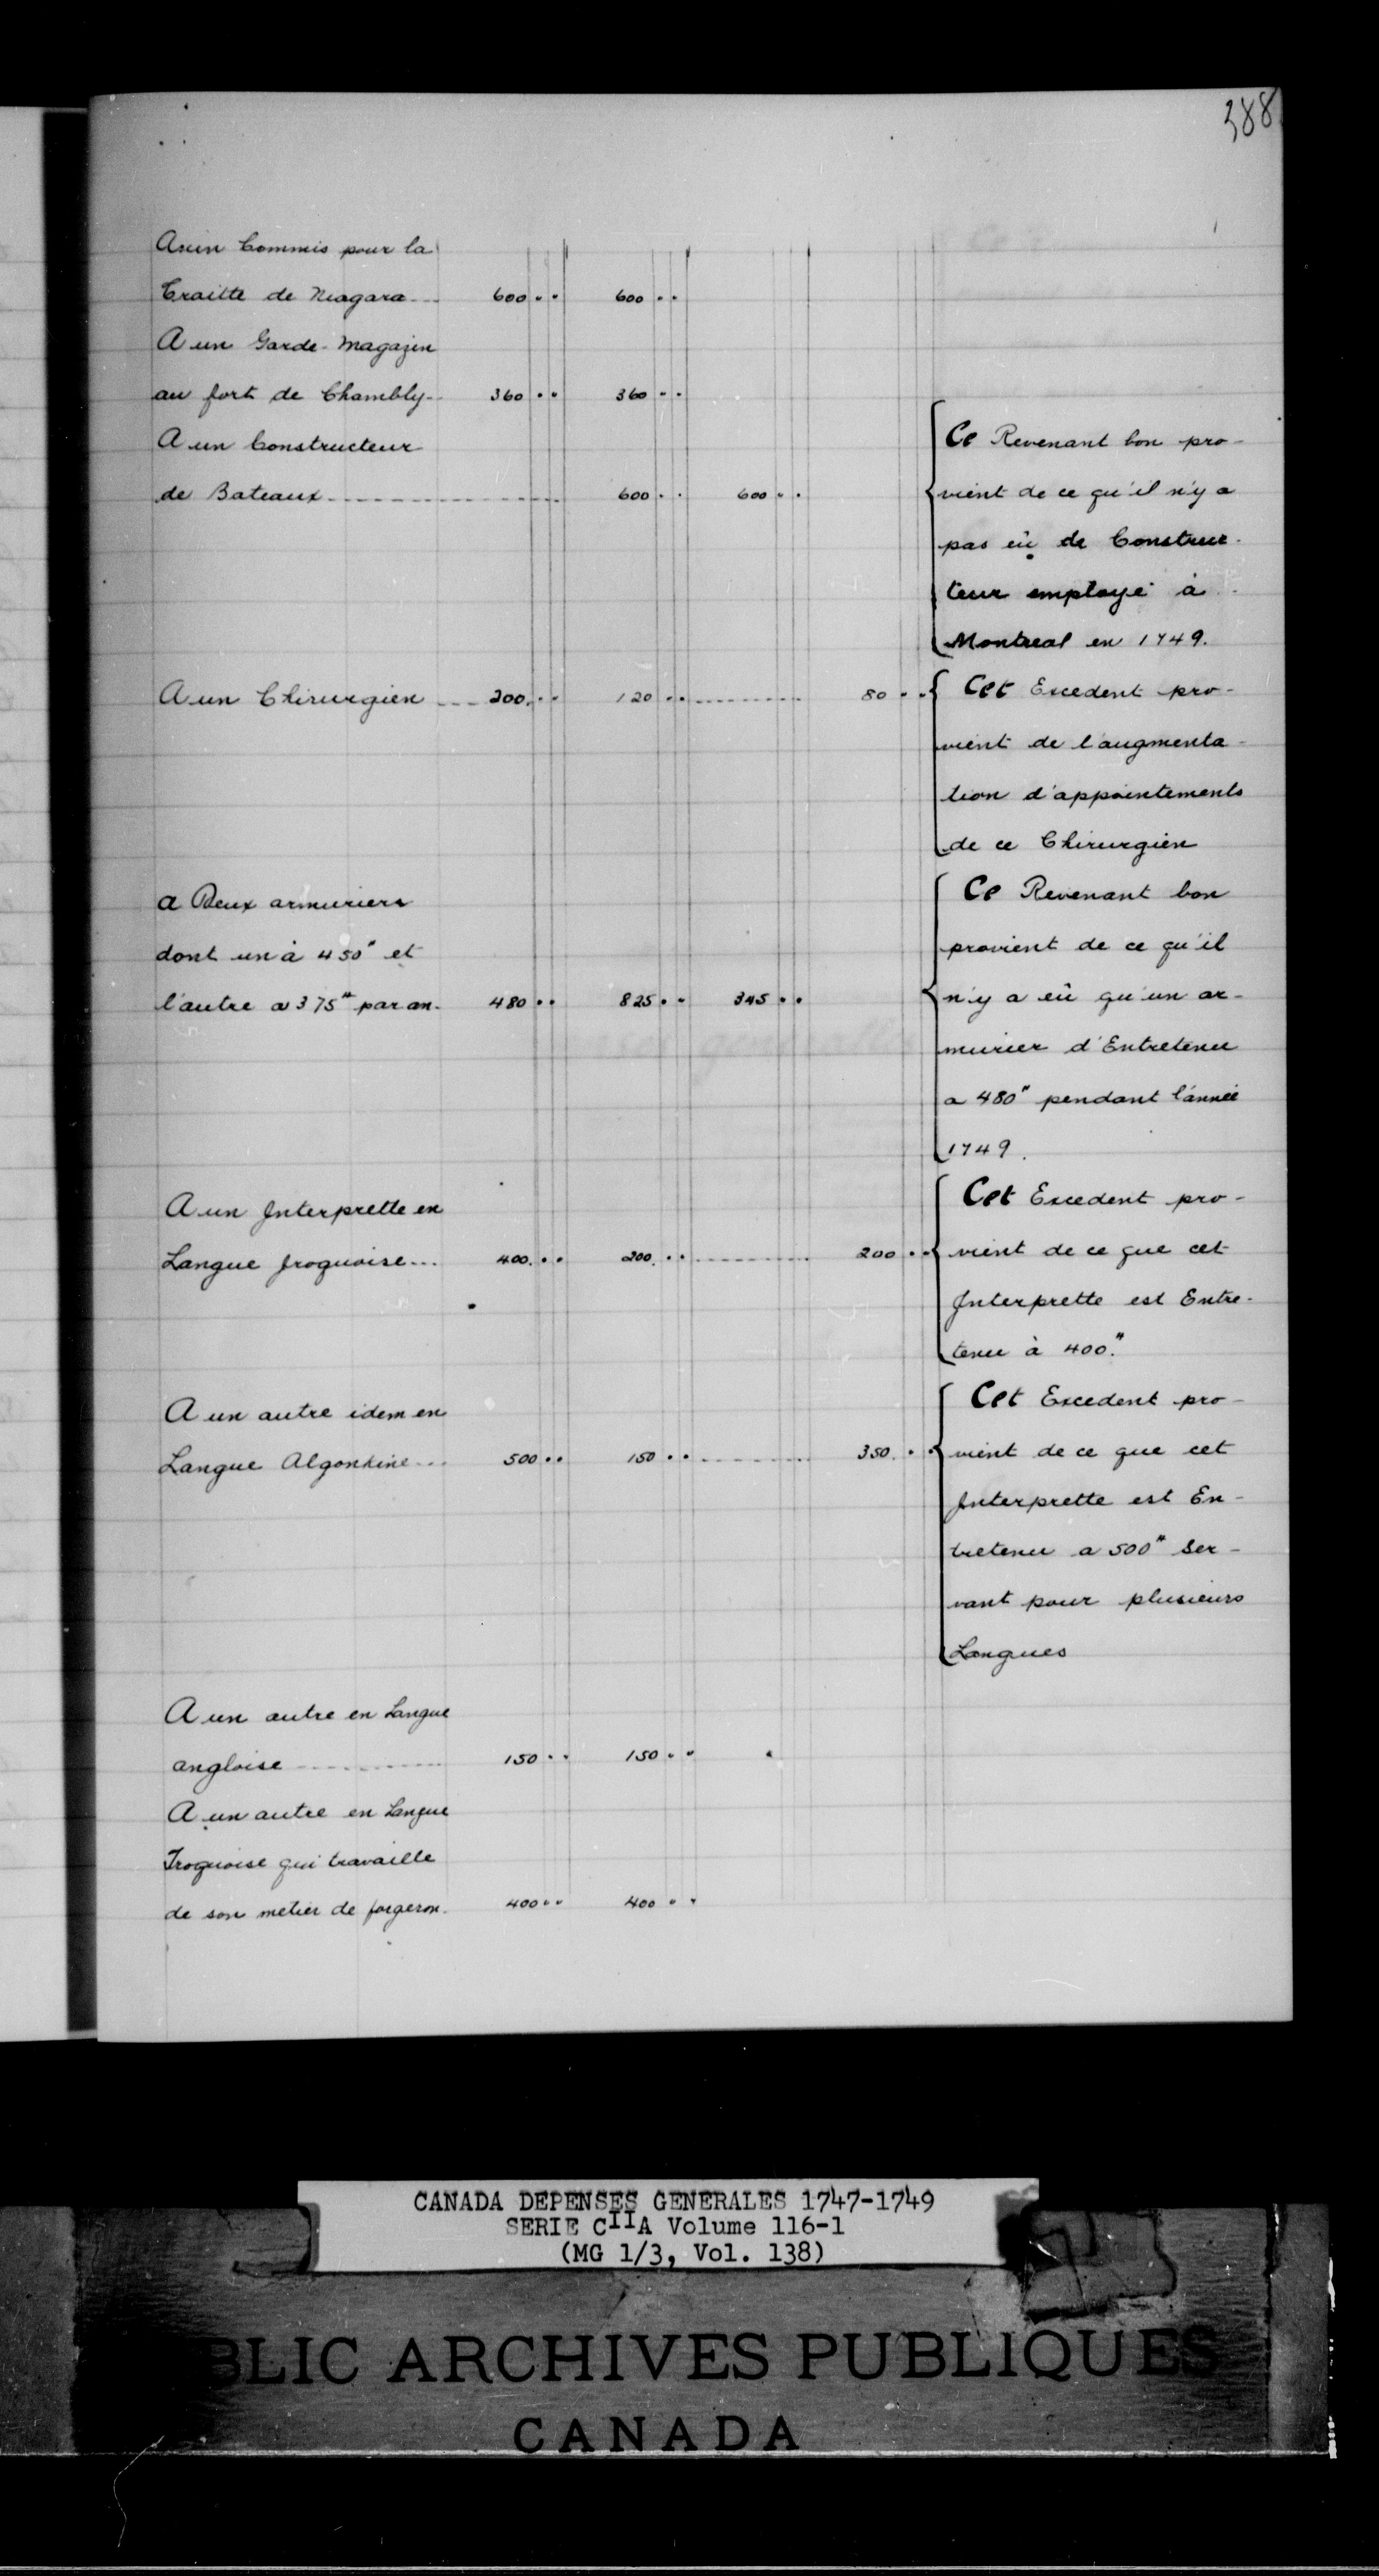 388
A un Commis pour la
Traitte de Niagara 600 .. 600 ..
A un Garde-Magazin
au fort de Chambly 360 .. 360 ..
A un Constructeur
de Bateaux 600 .. 600 ..
Ce Revenant bon pro-
vient de ce qu'il n'y a
pas eû de Construc-
teur employé à
Montreal en 1749.
A un Chirurgien 200 .. 120 .. 80 ..
Cet Excedent pro-
vient de l'augmenta-
tion d'appointements
de ce Chirurgien
a Deux armuriers
dont un à 450" et
l'autre a 375" par an. 480 .. 825 .. 345 ..
Ce Revenant bon
provient de ce qu'il
n'y a eû qu'un ar-
murier d'Entretenu
a 480" pendant l'année
1749.
A un Interprette en
Langue Iroquoise... 400 .. 200 .. 200 ..
Cet Excedent pro-
vient de ce que cet
Interprette est Entre-
tenu à 400."
A un autre idem en
Langue Algonkine... 500 .. 150 .. 350 ..
Cet Excedent pro-
vient de ce que cet
Interprette est En-
tretenu a 500" Ser-
vant pour plusieurs
Langues
A un autre en Langue
angloise 150 .. 150 ..
A un autre en Langue
Iroquoise qui travaille
de son metier de forgeron. 400 .. 400 ..
CANADA DEPENSES GENERALES 1747-1749
SERIE CIIA Volume 116-1
(MG 1/3, Vol. 138)
BLIC ARCHIVES PUBLIQUES
CANADA